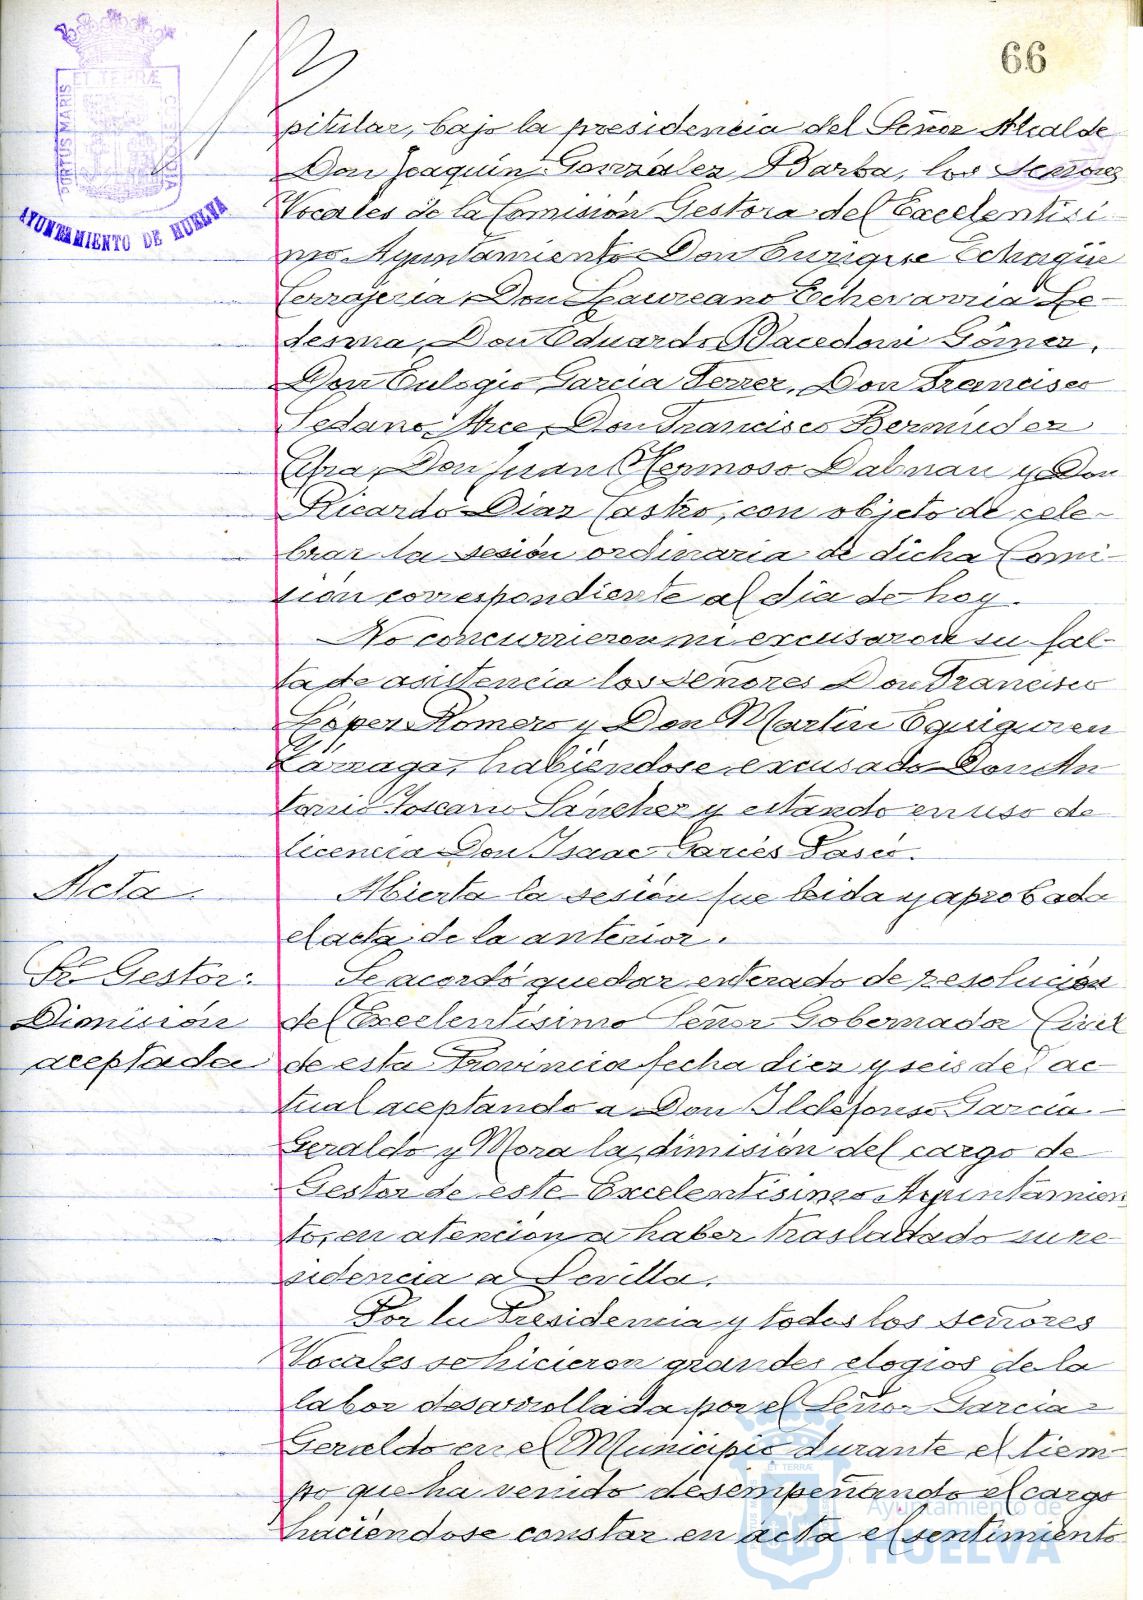 66
PORTUS MARIS ET TERRÆ CUSTODIA
AYUNTAMIENTO DE HUELVA
pitular, bajo la presidencia del Señor Alcalde
Don Joaquín González Barba, los Señores
Vocales de la Comisión Gestora del Excelentísi-
mo Ayuntamiento Don Enrique Echagüe
Cerrajería, Don Laureano Echevarría Le-
desma, Don Eduardo Macedoni Gómez,
Don Eulogio García Ferrer, Don Francisco
Sedano Arce, Don Francisco Bermúdez
Don Juan Hermoso Dalnau y Don
Ricardo Díaz Castro, con objeto de cele-
brar la sesión ordinaria de dicha Comi-
sión correspondiente al día de hoy.
No concurrieron ni excusaron su fal-
ta de asistencia los señores Don Francisco
López Romero y Don Martín Eguiguren
Lárraga, habiéndose excusado Don An
tonio Toscano Sánchez y estando en uso de
licencia Don Isaac Garcés Pascó.
Acta.
Abierta la sesión fue leída y aprobada
el acta de la anterior.
Sr. Gestor:
Dimisión
aceptada
Se acordó quedar enterado de resolución
del Excelentísimo Señor Gobernador Civil
de esta Provincia fecha diez y seis del ac-
tual aceptando a Don Ildefonso García-
Geraldo y Mora la dimisión del cargo de
Gestor de este Excelentísimo Ayuntamien
to, en atención a haber trasladado su re-
sidencia a Sevilla.
Por la Presidencia y todos los señores
Vocales se hicieron grandes elogios de la
labor desarrollada por el Señor García-
Geraldo en el Municipio durante el tiem-
po que ha venido desempeñando el cargo
haciéndose constar en acta el sentimiento
Ayuntamiento de
HUELVA